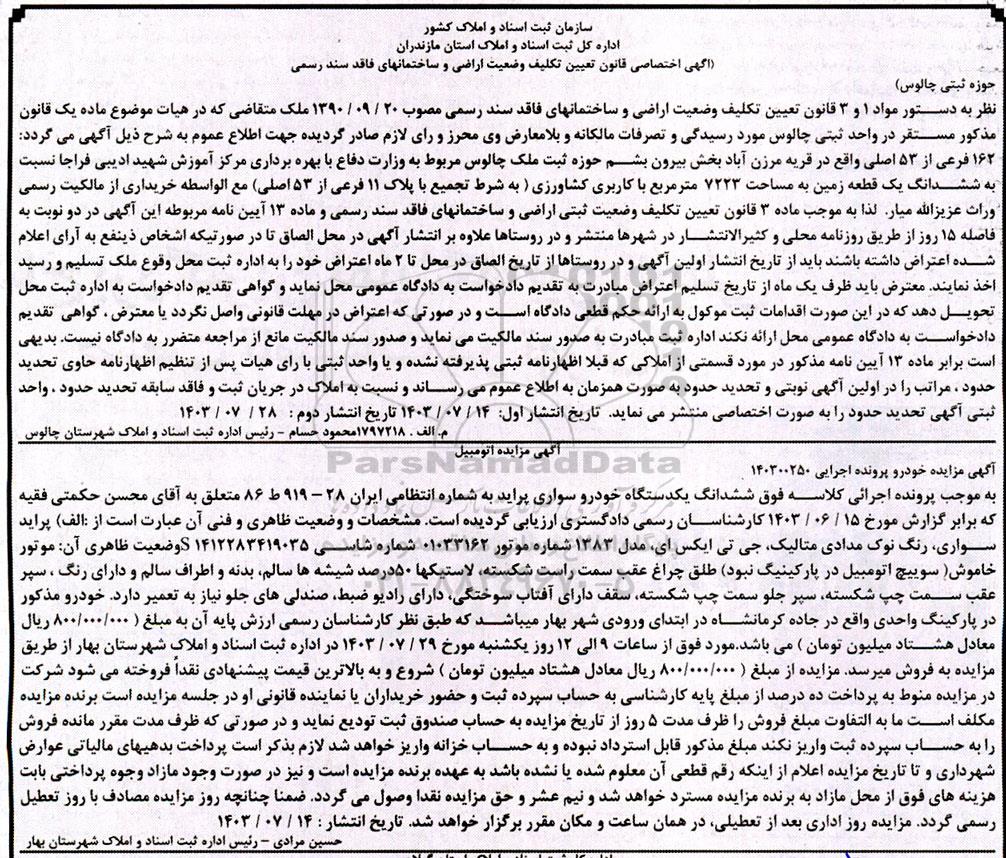 سازمان ثبت اسناد و املاک کشور
اداره کل ثبت اسناد و املاک استان مازندران
(آگهی اختصاصی قانون تعیین تکلیف وضعیت اراضی و ساختمانهای فاقد سند رسمی
حوزه ثبتی چالوس)
نظر به دستور مواد ۱ و ۳ قانون تعیین تکلیف وضعیت اراضی و ساختمانهای فاقد سند رسمی مصوب ۲۰ / ۰۹ / ۱۳۹۰ ملک متقاضی که در هیات موضوع ماده یک قانون
مذکور مستقر در واحد ثبتی چالوس مورد رسیدگی و تصرفات مالکانه و بلامعارض وی محرز و رای لازم صادر گردیده جهت اطلاع عموم به شرح ذیل آگهی می گردد:
۱۶۲ فرعی از ۵۳ اصلی واقع در قریه مرزن آباد بخش بیرون بشم حوزه ثبت ملک چالوس مربوط به وزارت دفاع با بهره برداری مرکز آموزش شهید ادیبی فراجا نسبت
به ششدانگ یک قطعه زمین به مساحت ۷۲۲۳ مترمربع با کاربری کشاورزی ( به شرط تجمیع با پلاک ۱۱ فرعی از ۵۳ اصلی) مع الواسطه خریداری از مالکیت رسمی
وراث عزیزالله میار. لذا به موجب ماده ۳ قانون تعیین تکلیف وضعیت ثبتی اراضی و ساختمانهای فاقد سند رسمی و ماده ۱۳ آیین نامه مربوطه این آگهی در دو نوبت به
فاصله ۱۵ روز از طریق روزنامه محلی و کثیرالانتشار در شهرها منتشر و در روستاها علاوه بر انتشار آگهی در محل الصاق تا در صورتیکه اشخاص ذینفع به آرای اعلام
شده اعتراض داشته باشند باید از تاریخ انتشار اولین آگهی و در روستاها از تاریخ الصاق در محل تا ۲ ماه اعتراض خود را به اداره ثبت محل وقوع ملک تسلیم و رسید
اخذ نمایند. معترض باید ظرف یک ماه از تاریخ تسلیم اعتراض مبادرت به تقدیم دادخواست به دادگاه عمومی محل نماید و گواهی تقدیم دادخواست به اداره ثبت محل
تحویل دهد که در این صورت اقدامات ثبت موکول به ارائه حکم قطعی دادگاه است و در صورتی که اعتراض در مهلت قانونی واصل نگردد یا معترض ، گواهی تقدیم
دادخواست به دادگاه عمومی محل ارائه نکند اداره ثبت مبادرت به صدور سند مالکیت می نماید و صدور سند مالکیت مانع از مراجعه متضرر به دادگاه نیست. بدیهی
است برابر ماده ۱۳ آیین نامه مذکور در مورد قسمتی از املاکی که قبلا اظهارنامه ثبتی پذیرفته نشده و یا واحد ثبتی با رای هیات پس از تنظیم اظهارنامه حاوی تحدید
حدود ، مراتب را در اولین آگهی نوبتی و تحدید حدود به صورت همزمان به اطلاع عموم می رساند و نسبت به املاک در جریان ثبت و فاقد سابقه تحدید حدود ، واحد
ثبتی آگهی تحدید حدود را به صورت اختصاصی منتشر می نماید. تاریخ انتشار اول: ۱۴ / ۰۷ / ۱۴۰۳ تاریخ انتشار دوم : ۲۸ / ۰۷ / ۱۴۰۳
م. الف . ۱۷۹۷۲۱۸ محمود حسام – رئیس اداره ثبت اسناد و املاک شهرستان چالوس
آگهی مزایده اتومبیل
آگهی مزایده خودرو پرونده اجرایی ۱۴۰۳۰۰۲۵۰
به موجب پرونده اجرائی کلاسه فوق ششدانگ یکدستگاه خودرو سواری پراید به شماره انتظامی ایران ۲۸ – ۹۱۹ ط ۸۶ متعلق به آقای محسن حکمتی فقیه
که برابر گزارش مورخ ۱۵ / ۰۶ / ۱۴۰۳ کارشناسان رسمی دادگستری ارزیابی گردیده است. مشخصات و وضعیت ظاهری و فنی آن عبارت است از :الف) پراید
سواری، رنگ نوک مدادی متالیک، جی تی ایکس ای، مدل ۱۳۸۳ شماره موتور ۰۱۰۳۳۱۶۲ شماره شاسی S۱۴۱۲۲۸۳۴۱۹۰۳۵ وضعیت ظاهری آن: موتور
خاموش( سوییچ اتومبیل در پارکینیگ نبود) طلق چراغ عقب سمت راست شکسته، لاستیکها ۵۰درصد شیشه ها سالم، بدنه و اطراف سالم و دارای رنگ ، سپر
عقب سمت چپ شکسته، سپر جلو سمت چپ شکسته، سقف دارای آفتاب سوختگی، دارای رادیو ضبط، صندلی های جلو نیاز به تعمیر دارد. خودرو مذکور
در پارکینگ واحدی واقع در جاده کرمانشاه در ابتدای ورودی شهر بهار میباشد که طبق نظر کارشناسان رسمی ارزش پایه آن به مبلغ ( ۸۰۰/۰۰۰/۰۰۰ ریال
معادل هشتاد میلیون تومان ) می باشد.مورد فوق از ساعات ۹ الی ۱۲ روز یکشنبه مورخ ۲۹ / ۰۷ / ۱۴۰۳ در اداره ثبت اسناد و املاک شهرستان بهار از طریق
مزایده به فروش میرسد. مزایده از مبلغ ( ۸۰۰/۰۰۰/۰۰۰ ریال معادل هشتاد میلیون تومان ) شروع و به بالاترین قیمت پیشنهادی نقداً فروخته می شود شرکت
در مزایده منوط به پرداخت ده درصد از مبلغ پایه کارشناسی به حساب سپرده ثبت و حضور خریداران یا نماینده قانونی او در جلسه مزایده است برنده مزایده
مکلف است ما به التفاوت مبلغ فروش را ظرف مدت ۵ روز از تاریخ مزایده به حساب صندوق ثبت تودیع نماید و در صورتی که ظرف مدت مقرر مانده فروش
را به حساب سپرده ثبت واریز نکند مبلغ مذکور قابل استرداد نبوده و به حساب خزانه واریز خواهد شد لازم بذکر است پرداخت بدهیهای مالیاتی عوارض
شهرداری و تا تاریخ مزایده اعلام از اینکه رقم قطعی آن معلوم شده یا نشده باشد به عهده برنده مزایده است و نیز در صورت وجود مازاد وجوه پرداختی بابت
هزینه های فوق از محل مازاد به برنده مزایده مسترد خواهد شد و نیم عشر و حق مزایده نقدا وصول می گردد. ضمنا چنانچه روز مزایده مصادف با روز تعطیل
رسمی گردد. مزایده روز اداری بعد از تعطیلی، در همان ساعت و مکان مقرر برگزار خواهد شد. تاریخ انتشار : ۱۴ / ۰۷ / ۱۴۰۳
حسین مرادی – رئیس اداره ثبت اسناد و املاک شهرستان بهار
ParsNamadData
۰۲۱-۸۸۳۴۹۶۷۰-۵